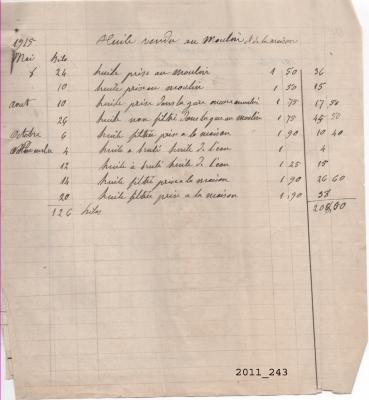 1915 Huile vendu au moulin et de la maison
Mai Kilos
8 24 huile prise au moulin 1 50 36
10 huile prise au moulin 1 50 15
Aout 10 huile prise dans la gare 1 75 17 50
26 huile non filtré dans la gare au moulin 1 75 45 50
Octobre 6 huile filtrée prise a la maison 1,90 10 40
Novembre 4 huile a huile de l'eau 1 4
12 huile à huile de l'eau 1 25 15
14 huile filtré prise a la maison 1,90 26 60
20 huile filtrée prise a la maison 1,90 38
126 kilos 208,00
2011_243